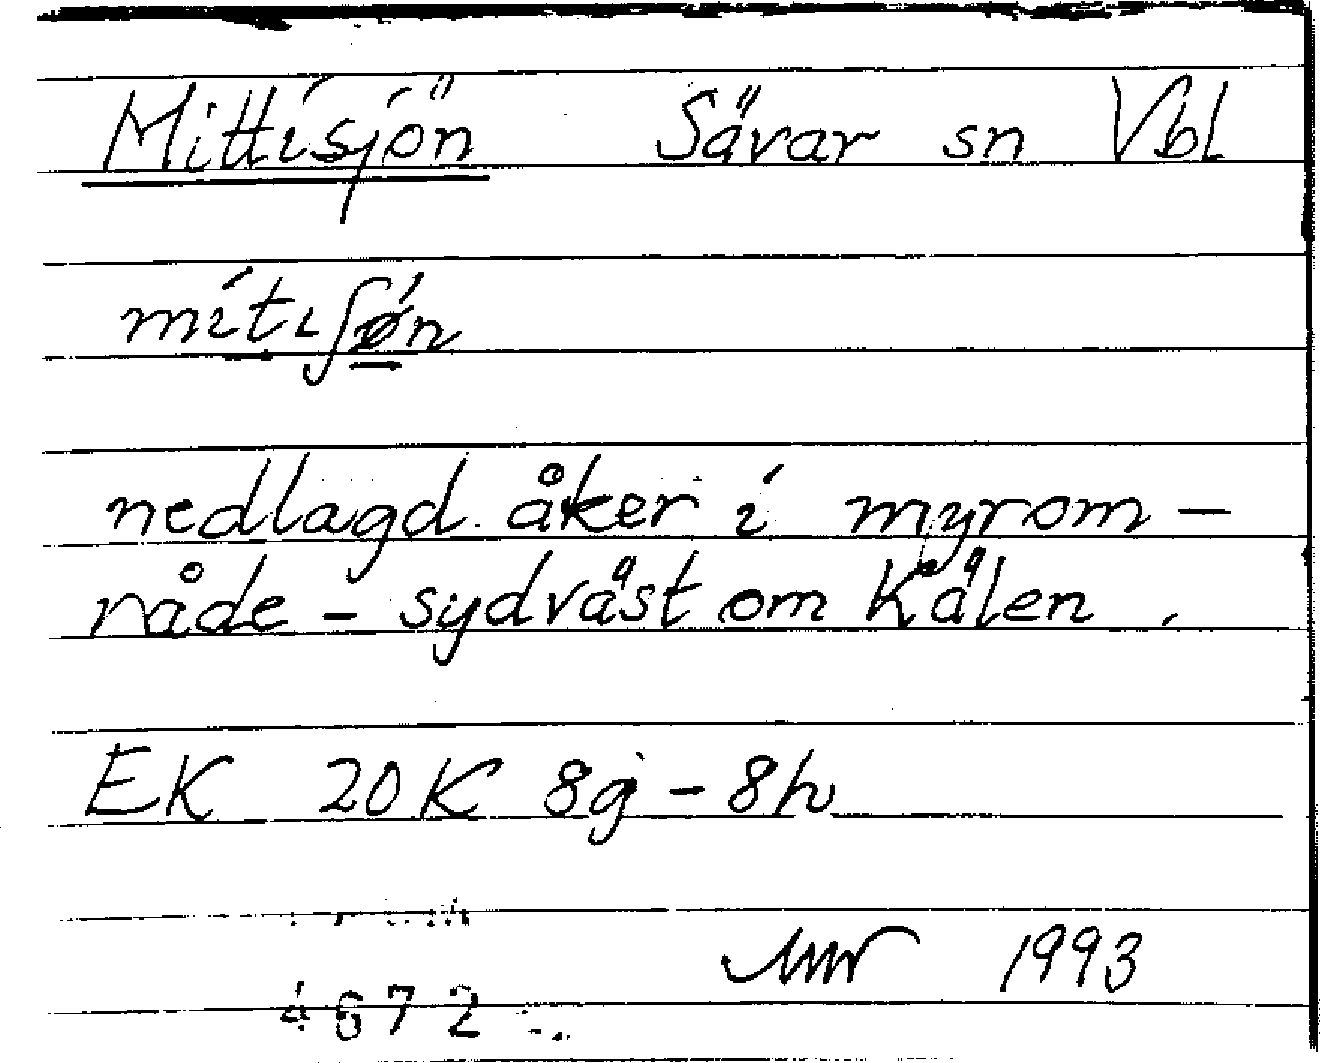 Mittisjön Sävar sn Vbl
nedlagd åker i myrom-
råde - sydväst om Kålen.
EK 20K 8g - 8h
1993
4672